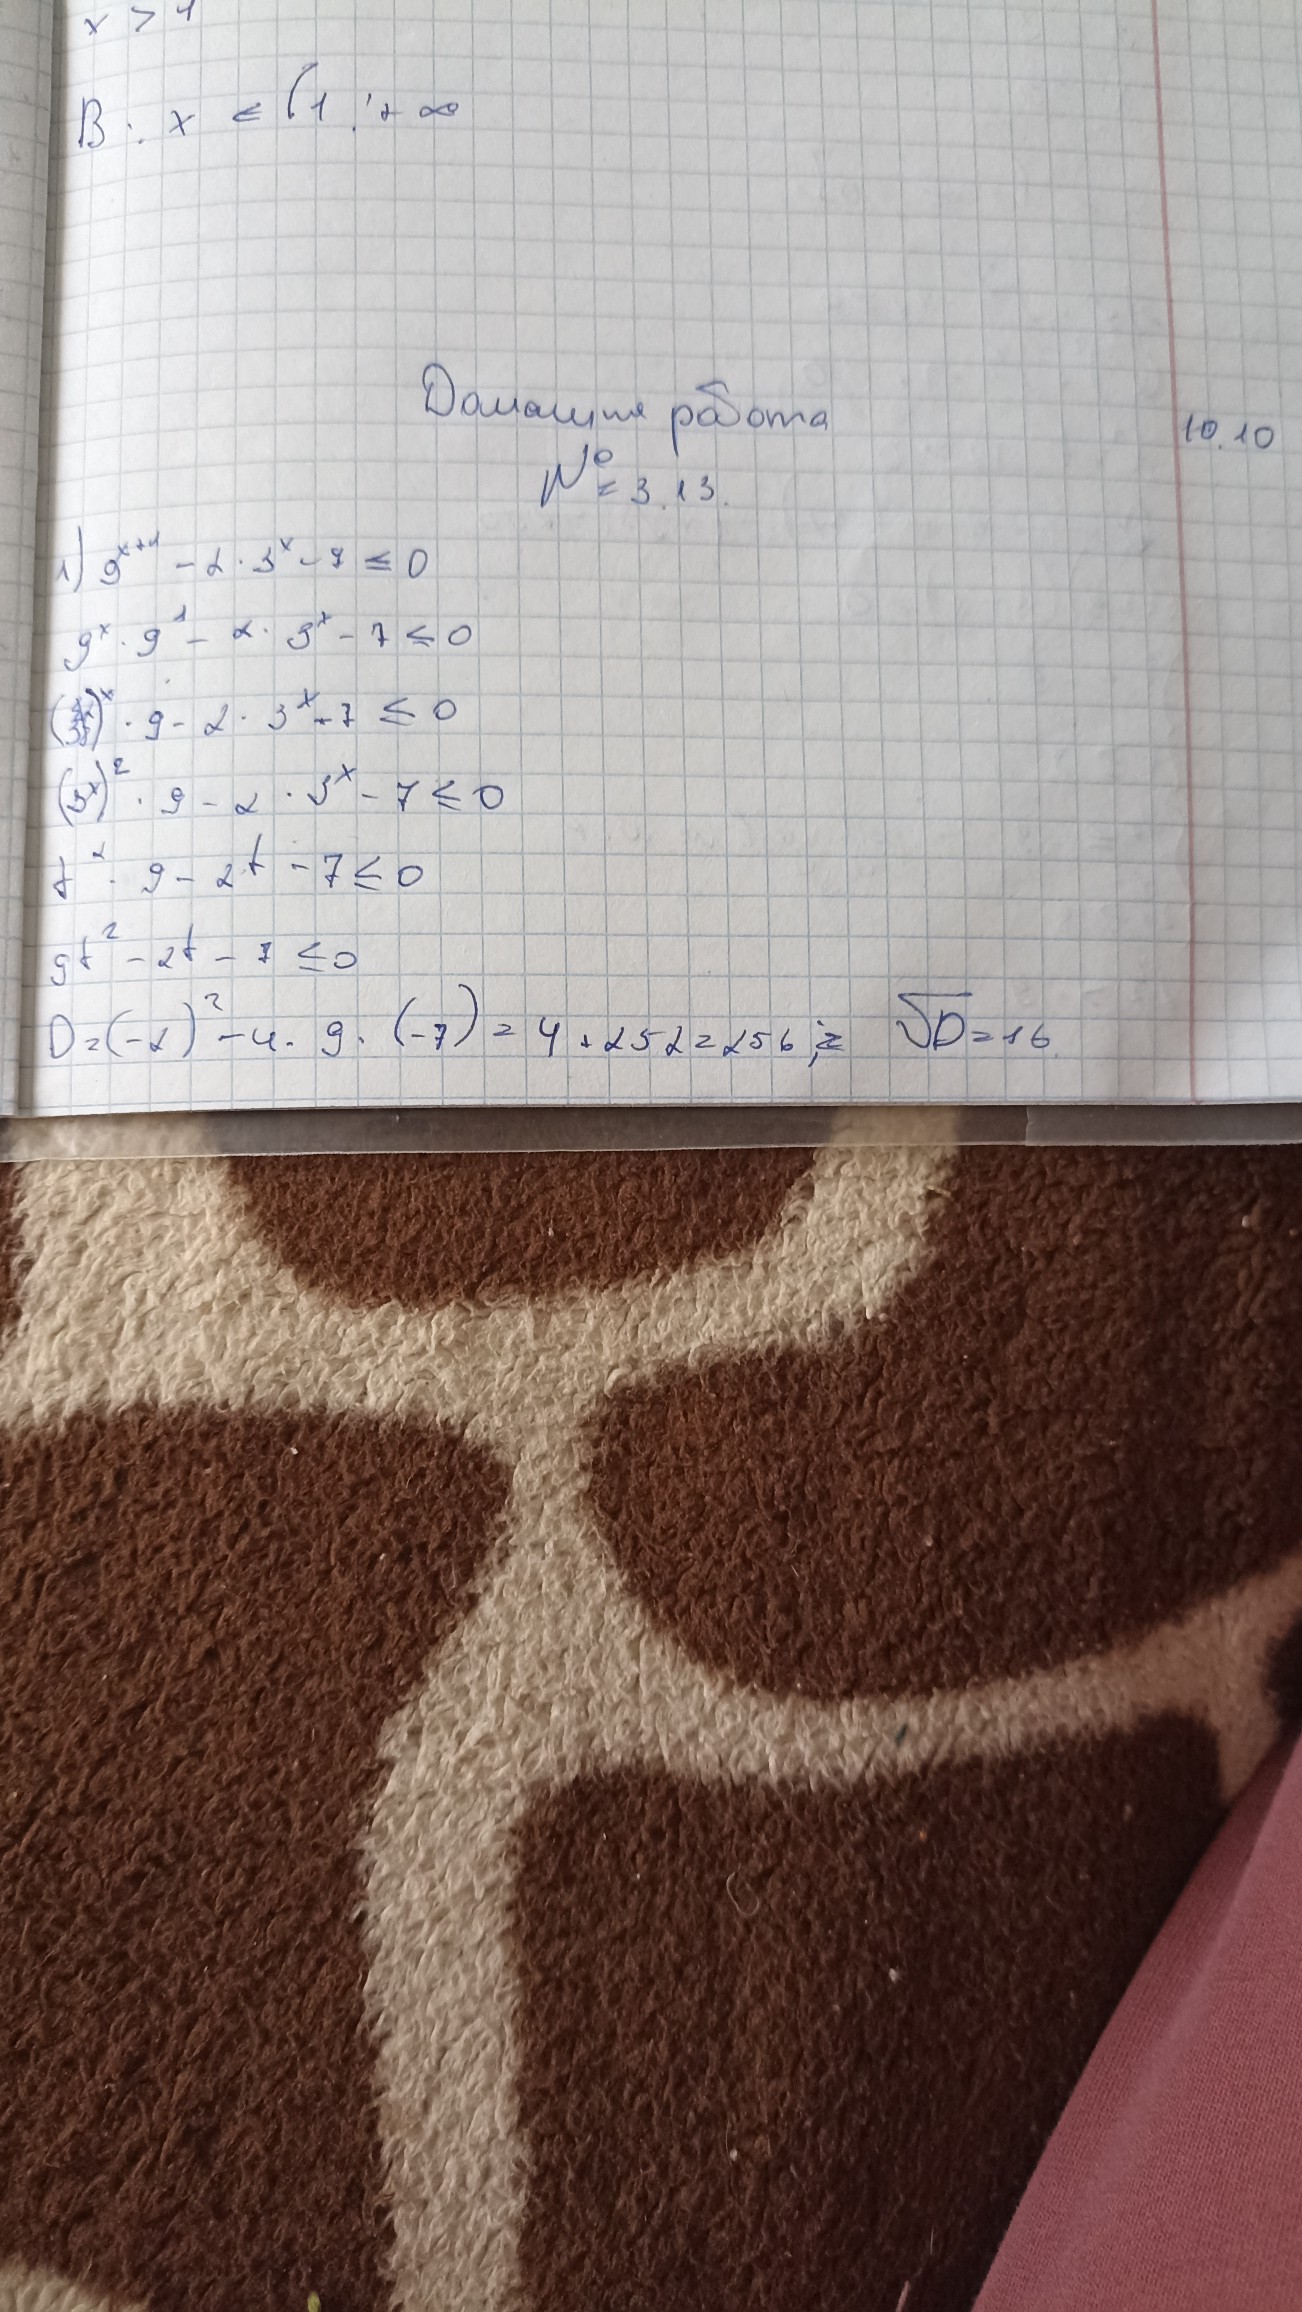 x > 1
В: x ∈ (1; +∞
Домашня работа
10.10
№ 3.13.
1) 9^(x+1) - 2·3^x - 7 ≤ 0
9^x · 9^1 - 2 · 3^x - 7 ≤ 0
(3²)^x · 9 - 2 · 3^x - 7 ≤ 0
(3^x)² · 9 - 2 · 3^x - 7 ≤ 0
t² · 9 - 2t - 7 ≤ 0
9t² - 2t - 7 ≤ 0
D = (-2)² - 4 · 9 · (-7) = 4 + 252 = 256; √D = 16